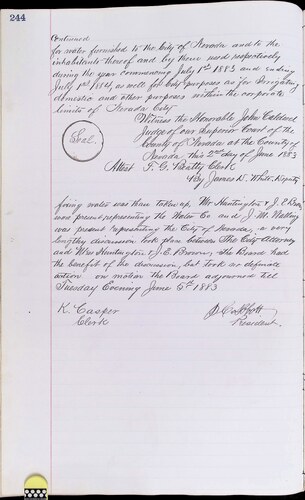 244
Continued
for water furnished to the City of Nevada and to the
inhabitants thereof and by them used respectively
during the year commencing July 1st 1883 and ending
July 1st 1884, as well for City purposes as for Irrigating
domestic and other purposes within the corporate
limits of Nevada City
Witness the Honorable John Caldwell
Judge of our Superior Court of the
County of Nevada at the County of
Nevada this 2nd day of June 1883
Seal.
Attest F. G. Beatty Clerk
By James N. White, Deputy
fixing rates was then taken up. Mr Huntington & J. E. Brown
was present representing the Water Co and J. M. Walling
was present representing the City of Nevada, a very
lengthy discussion took place between The City Attorney
and Messrs Huntington & J. E. Brown, The Board had
the benefit of the discussion, but took no definate
action on motion the Board adjourned till
Tuesday Evening June 5th 1883
K. Casper
Clerk
President